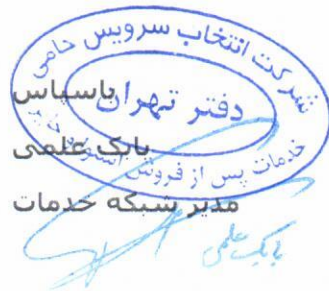 شرکت انتخاب سرویس حامی
دفتر تهران
خدمات پس از فروش
باسپاس
بابک علمی
مدیر شبکه خدمات
بابک علمی